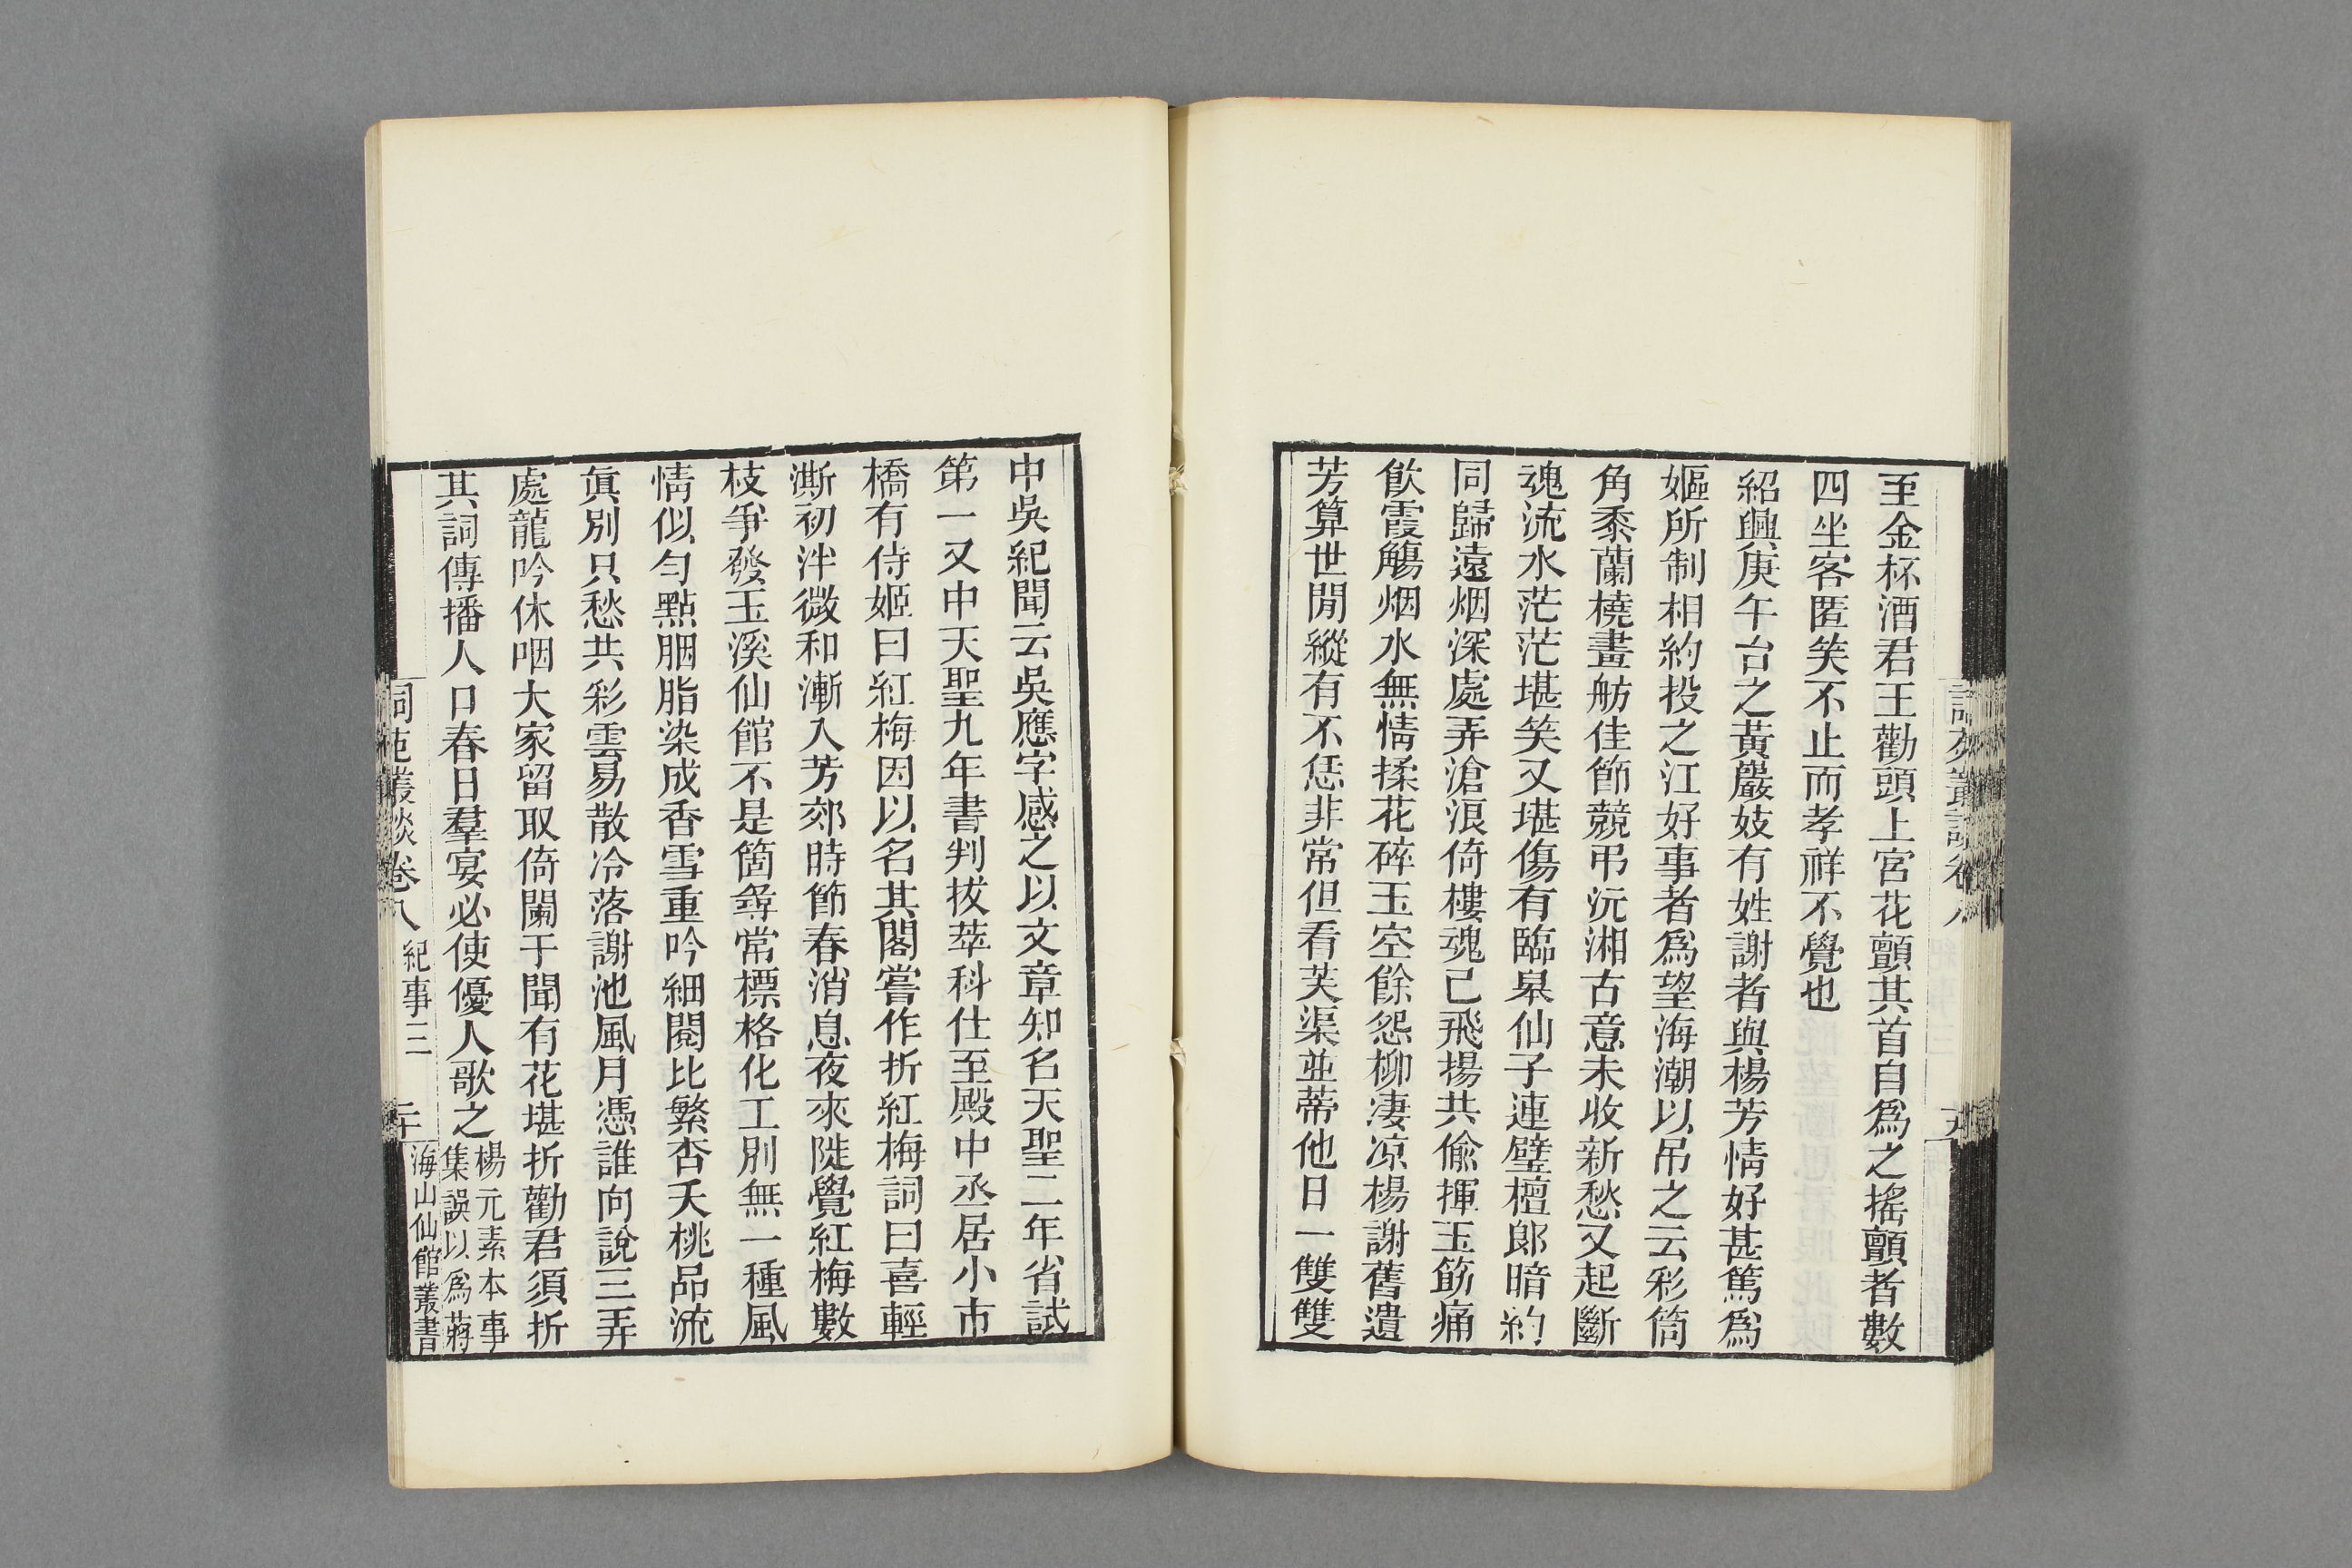 至金杯酒君王勸頭上宮花顫其首自爲之搖顫者數
四坐客匿笑不止而孝祥不覺也
紹興庚午台之黃嚴妓有姓謝者與楊芳情好甚篤爲
嫗所制相約投之江好事者爲望海潮以吊之云彩筒
角黍蘭橈畫舫佳節競弔沅湘古意未收新愁又起斷
魂流水茫茫堪笑又堪傷有臨臯仙子連璧檀郎暗約
同歸遠烟深處弄滄浪倚樓魂已飛揚共偸揮玉筯痛
飲霞觴烟水無情揉花碎玉空餘怨柳凄凉楊謝舊遺
芳算世閒縱有不恁非常但看芙渠並蒂他日一雙雙
中吳紀聞云吳應字感之以文章知名天聖二年省試
第一又中天聖九年書判拔萃科仕至殿中丞居小市
橋有侍姬曰紅梅因以名其閣嘗作折紅梅詞曰喜輕
澌初泮微和漸入芳郊時節春消息夜來陡覺紅梅數
枝爭發玉溪仙館不是箇尋常標格化工別無一種風
情似勻點胭脂染成香雪重吟細閱比繁杏夭桃品流
眞別只愁共彩雲易散冷落謝池風月憑誰向說三弄
處龍吟休咽大家留取倚闌干聞有花堪折勸君須折
其詞傳播人口春日羣宴必使優人歌之楊元素本事
集誤以爲蔣
詞苑叢談卷八 紀事三 二十 海山仙館叢書